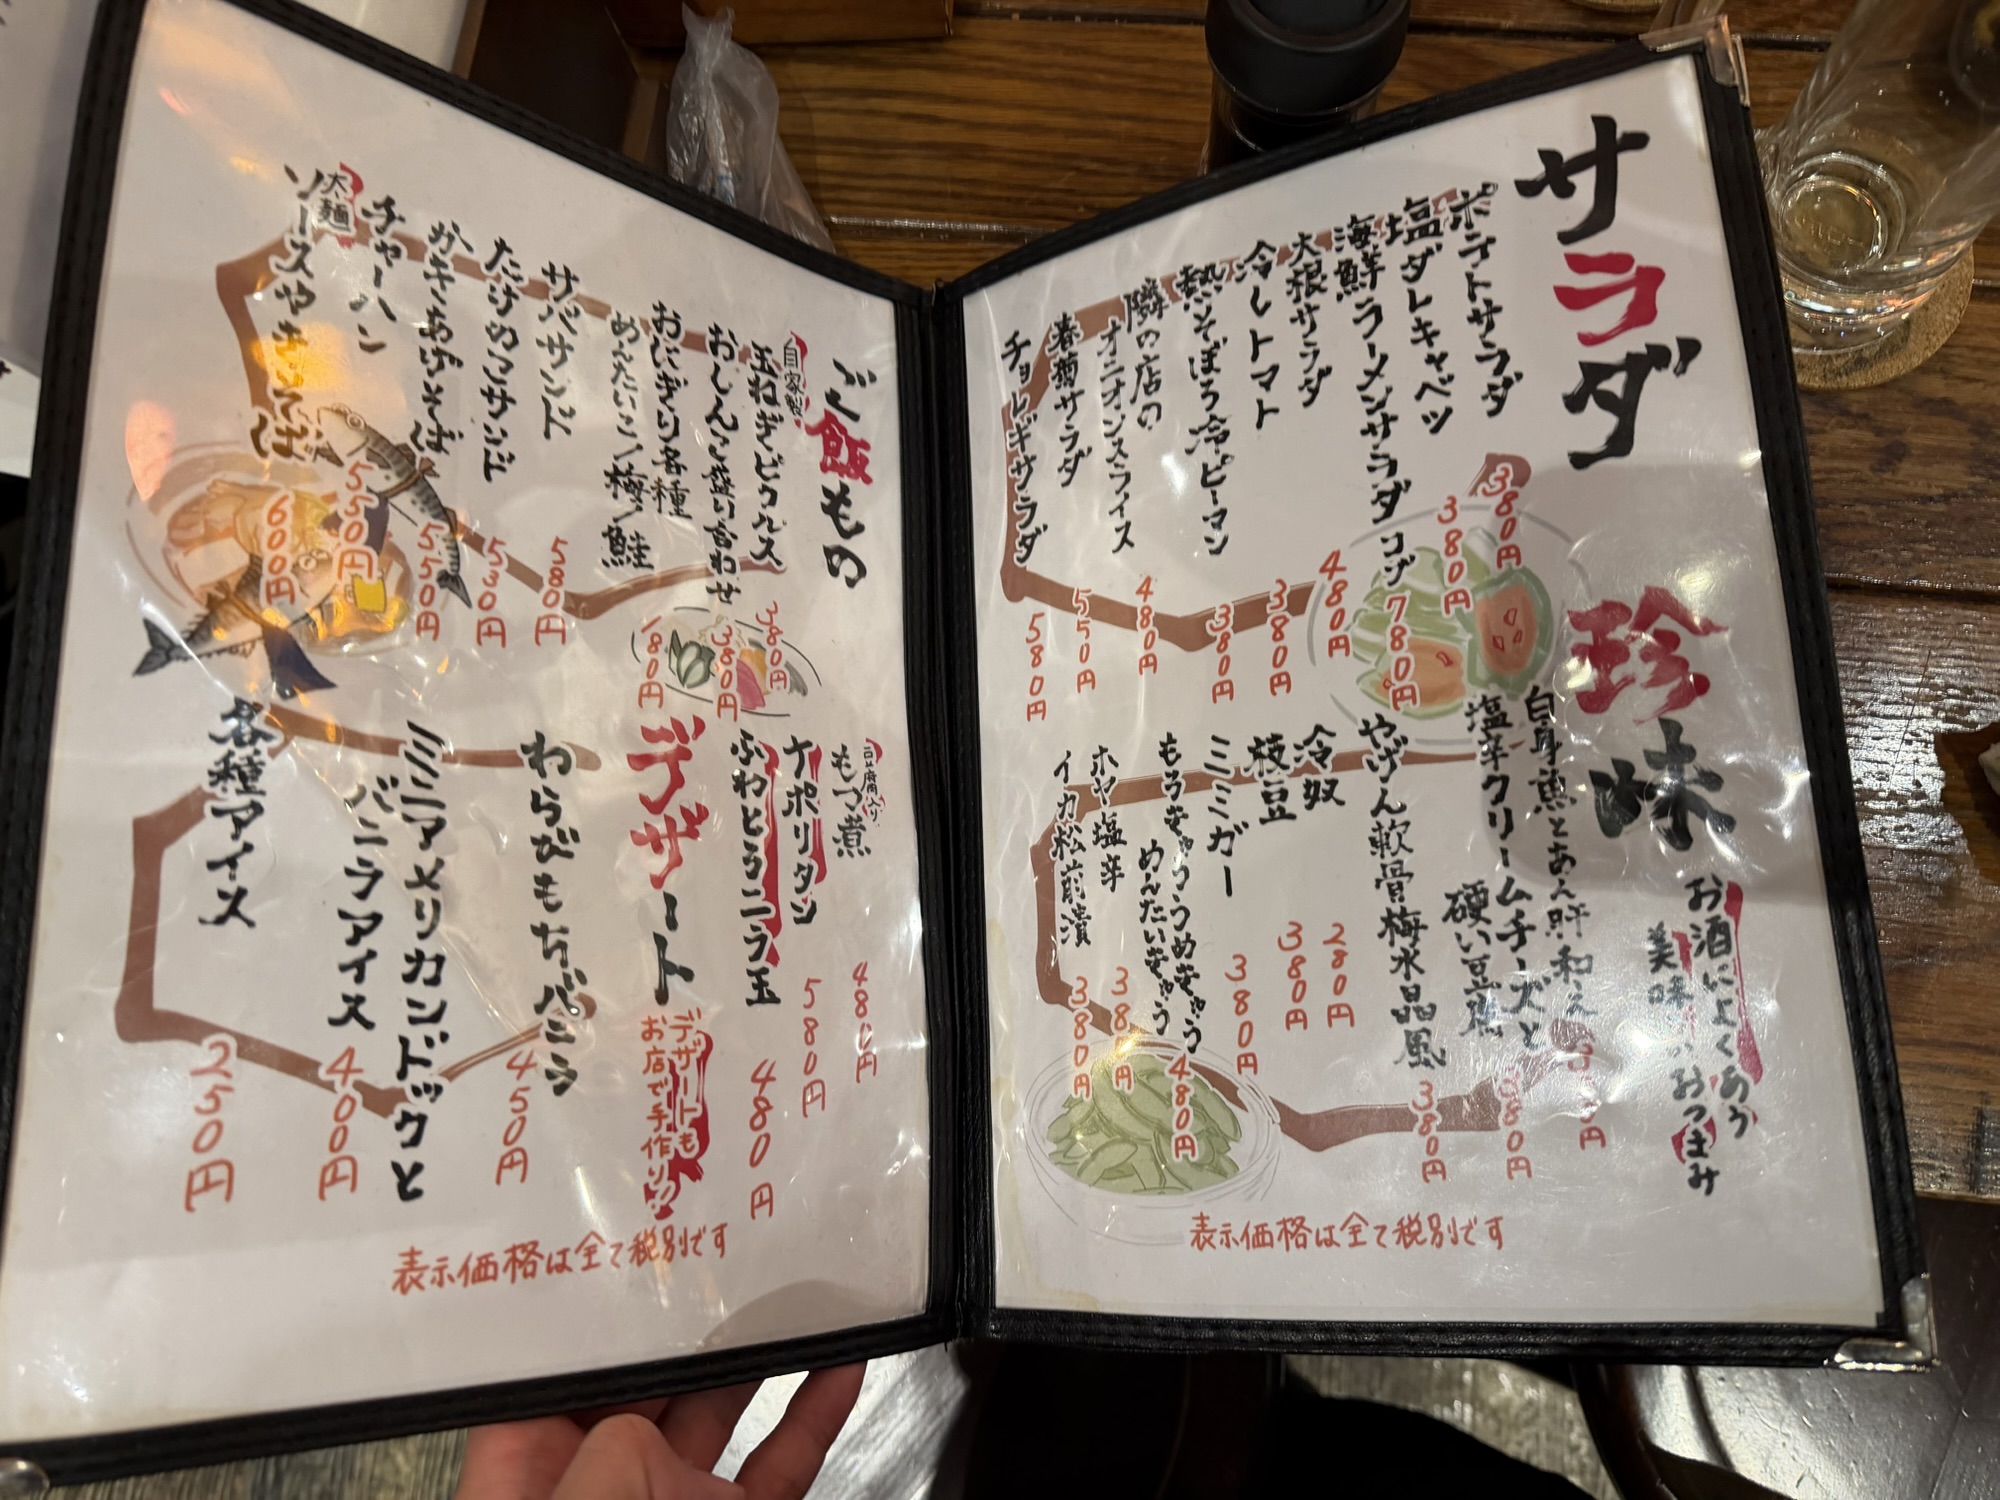 サラダ
ポテトサラダ 380円
塩ダレキャベツ 380円
海鮮ラーメンサラダ 780円
大根サラダ 480円
冷しトマト 380円
熱々そぼろ冷ピーマン 380円
隣の店の
オニオンスライス 480円
春菊サラダ 550円
チョレギサラダ 580円
珍味
お酒によくあう
美味しいおつまみ
白身魚とあん肝和え
塩辛クリームチーズと
硬い豆腐 380円
やげん軟骨梅水晶風 380円
冷奴 280円
枝豆 380円
ミミガー 380円
もろきゅう/うめきゅう
めんたいきゅう 480円
ホヤ塩辛 380円
イカ松前漬 380円
表示価格は全て税別です
ご飯もの
自家製
玉ねぎピクルス 380円
おしんこ盛り合わせ 380円
おにぎり各種 180円
めんたいこ/梅/鮭
サバサンド 580円
たけのこサンド 530円
かきあげそば 550円
チャーハン 550円
太麺
ソースやきそば 600円
豆腐入り
もつ煮 480円
ナポリタン 580円
ふわとろニラ玉 480円
デザート
デザートも
お店で手作り
わらびもちバニラ 450円
ミニアメリカンドックと
バニラアイス 400円
各種アイス 250円
表示価格は全て税別です